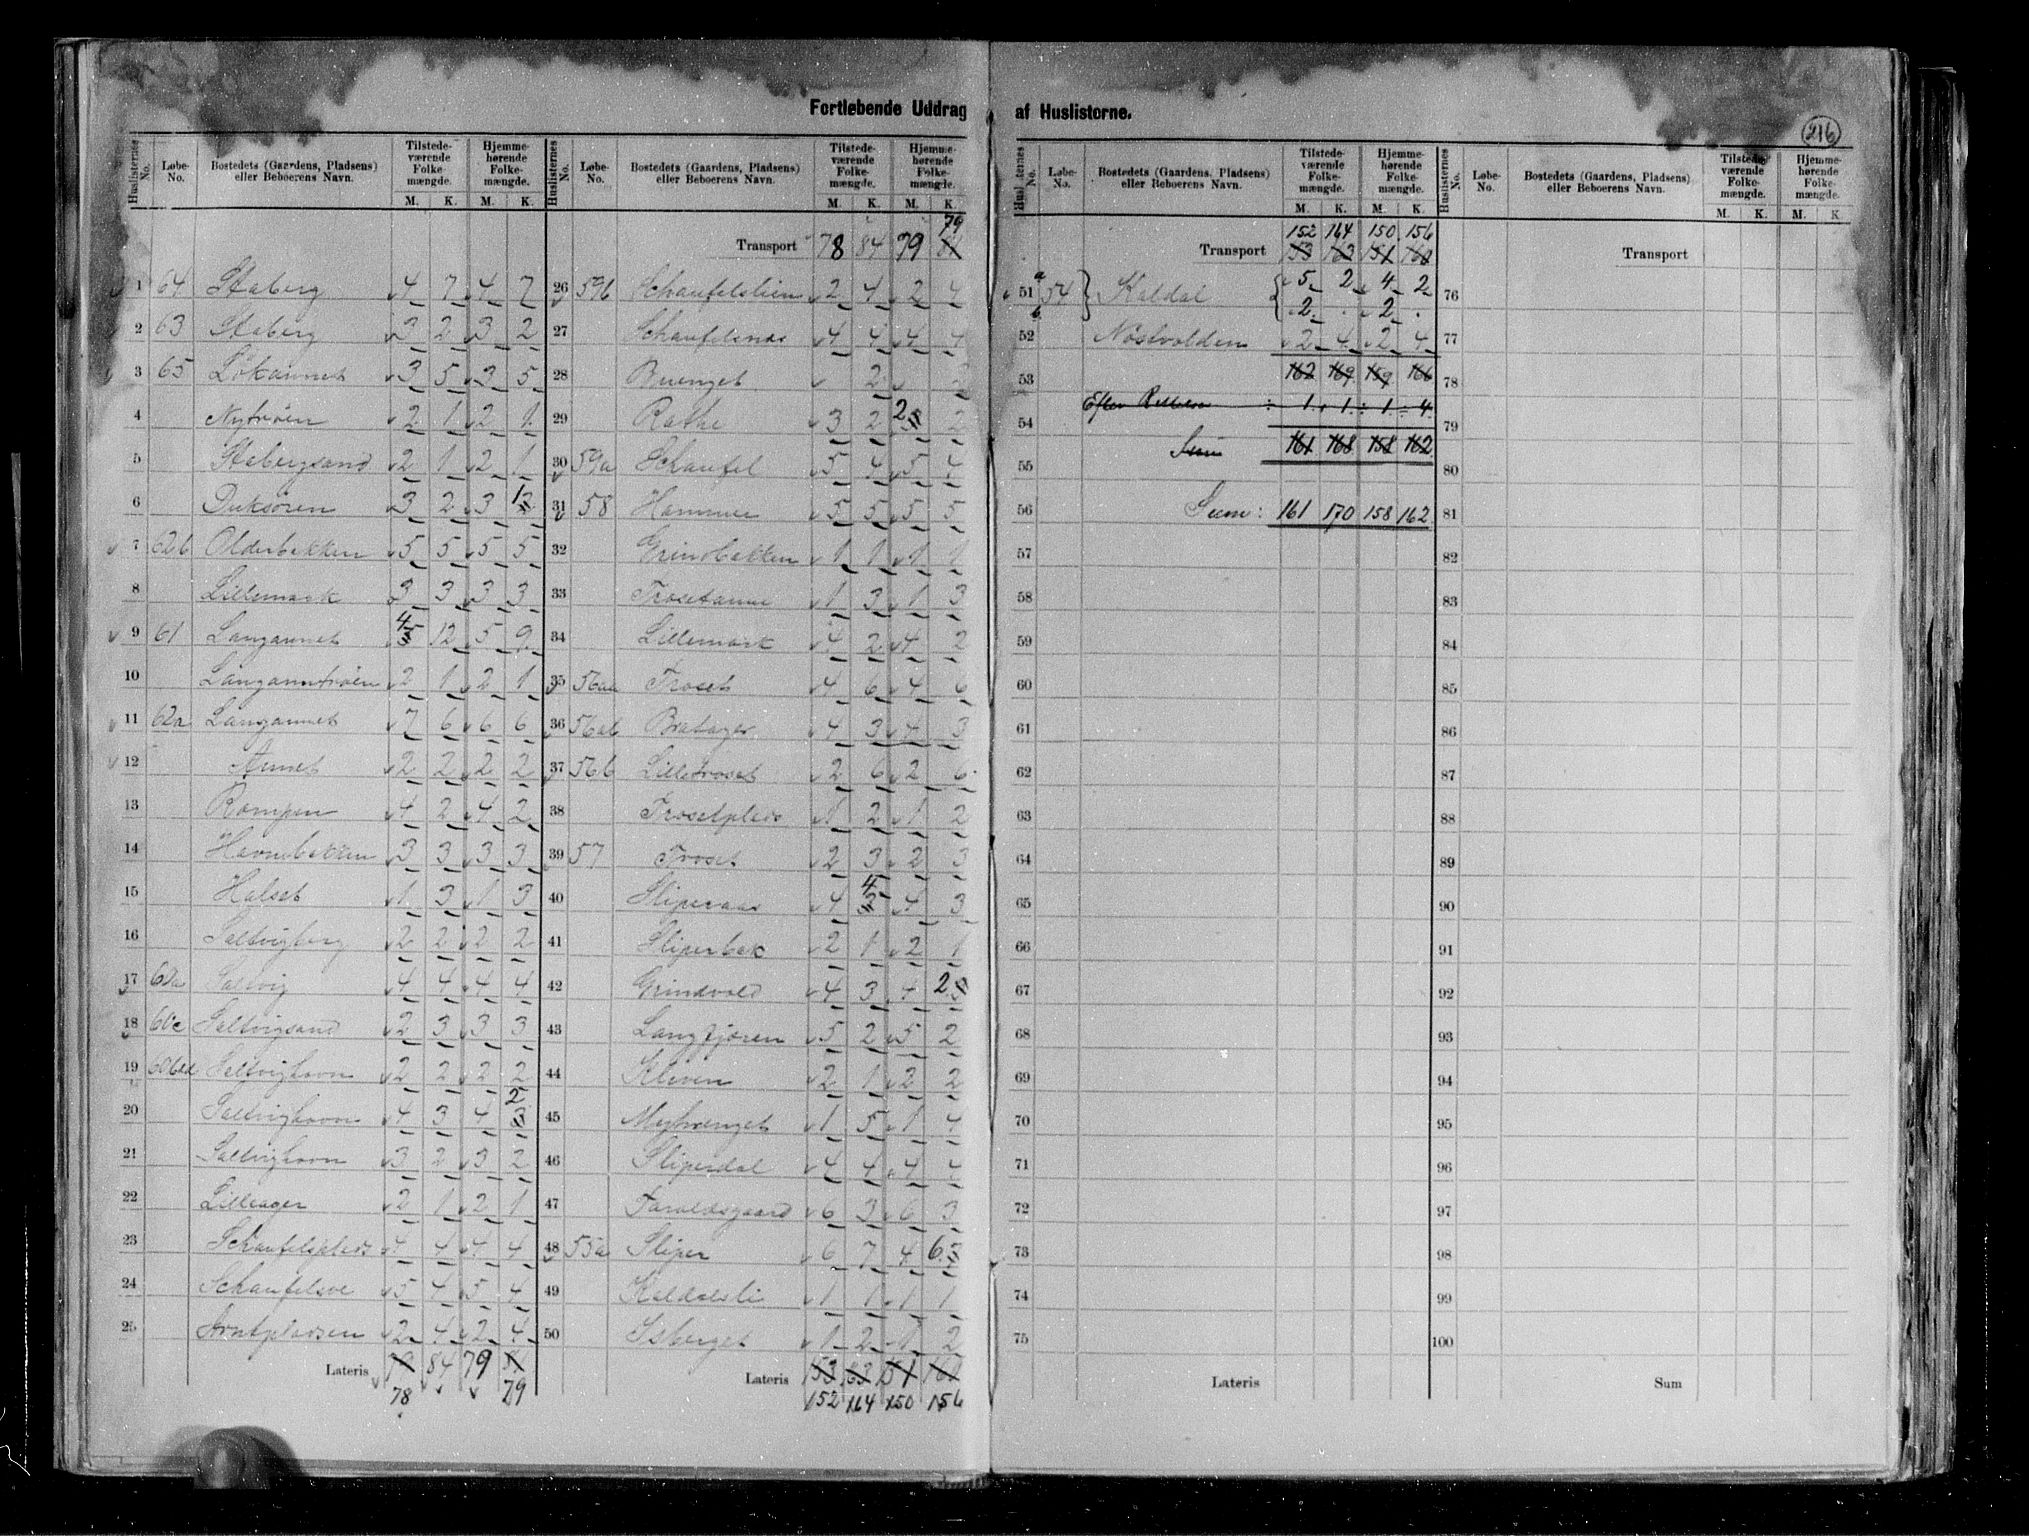 Fortløbende Uddrag af Huslisterne.
216
Huslisternes No. Løbe-No. Bostedets (Gaardens, Pladsens) eller Beboerens Navn. Tilstede-værende Folke-mængde. M. K. Hjemme-hørende Folke-mængde. M. K.
1 64 Staberg 4 7 4 7
2 63 Staberg 3 2 3 2
3 65 Lökaunet 3 5 3 5
4 Nytrøen 2 1 2 1
5 Stabergsand 2 1 2 1
6 3 2 3 1
7 62b Olderbakken 5 5 5 5
8 Lillemark 3 3 3 3
9 61 Langaunet 4 5 12 5 9
10 Langaunetrøen 2 1 2 1
11 62a Langaunet 7 6 6 6
12 Aunet 2 2 2 2
13 Rompen 4 2 4 2
14 Havnebakken 3 3 3 3
15 Halset 1 3 1 3
16 Saltvigberg 2 2 2 2
17 60a Saltvig 4 4 4 4
18 60c Saltvigsand 2 3 3 3
19 Saltvighavn 2 2 2 2
20 Saltvighavn 4 3 4 2 3
21 Saltvighavn 3 2 3 2
22 Lilleager 2 1 2 1
23 Schaufelsplads 4 4 4 4
24 5 4 5 4
25 2 4 2 4
Lateris 79 84 79 81
78 79
Huslisternes No. Løbe-No. Bostedets (Gaardens, Pladsens) eller Beboerens Navn. Tilstede-værende Folke-mængde. M. K. Hjemme-hørende Folke-mængde. M. K.
79
Transport 78 84 79 81
26 59b Schaufelslien 2 4 2 4
27 Schaufelsnes 4 4 4 4
28 2 2
29 Rathe 3 2 2 3 2
30 59a Schaufel 5 4 5 4
31 58 Hammer 5 5 5 5
32 Grindbakken 1 1 1 1
33 Trosetaune 1 3 1 3
34 Lillemark 4 2 4 2
35 56aa Troset 4 6 4 6
36 56ab Bratager 4 3 4 3
37 56b Lilletroset 2 6 2 6
38 Trosetplads 1 2 1 2
39 57 Troset 2 3 2 3
40 Sliperaas 4 4 3 4 3
41 Sliperbak 2 1 2 1
42 Grindvold 4 3 4 2 3
43 Langfjæren 5 2 5 2
44 Kleven 2 1 2 2
45 Myhrenget 1 5 1 4
46 Sliperdal 4 4 4 4
47 Faroldsgaard 6 3 6 3
48 55a Sliper 6 7 4 6 5
49 Kaldalsli 1 1 1 1
50 Isberget 1 2 1 2
Lateris 153 163 151 161
152 164 150 156
Løbe-No. Bostedets (Gaardens, Pladsens) eller Beboerens Navn. Tilstede-værende Folke-mængde. M. K. Hjemme-hørende Folke-mængde. M. K.
152 164 150 156
Transport 153 163 151 160
51 a 54 Kaldal 5 2 4 2
b 2 . 2 .
52 Nöstvolden 2 4 2 4
53 162 169 159 166
Efter 1 1 1 4
54
Sum 161 168 158 162
55
56 Sum: 161 170 158 162
57
58
59
60
61
62
63
64
65
66
67
68
69
70
71
72
73
74
75
Lateris
Huslisternes No. Løbe-No. Bostedets (Gaardens, Pladsens) eller Beboerens Navn. Tilstede-værende Folke-mængde. M. K. Hjemme-hørende Folke-mængde. M. K.
Transport
76
77
78
79
80
81
82
83
84
85
86
87
88
89
90
91
92
93
94
95
96
97
98
99
100
Sum